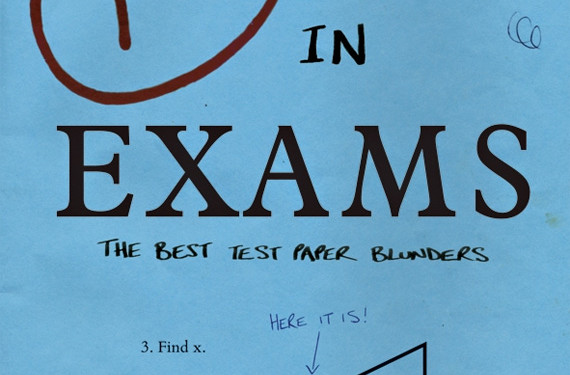 IN
EXAMS
THE BEST TEST PAPER BLUNDERS
HERE IT IS!
3. Find x.